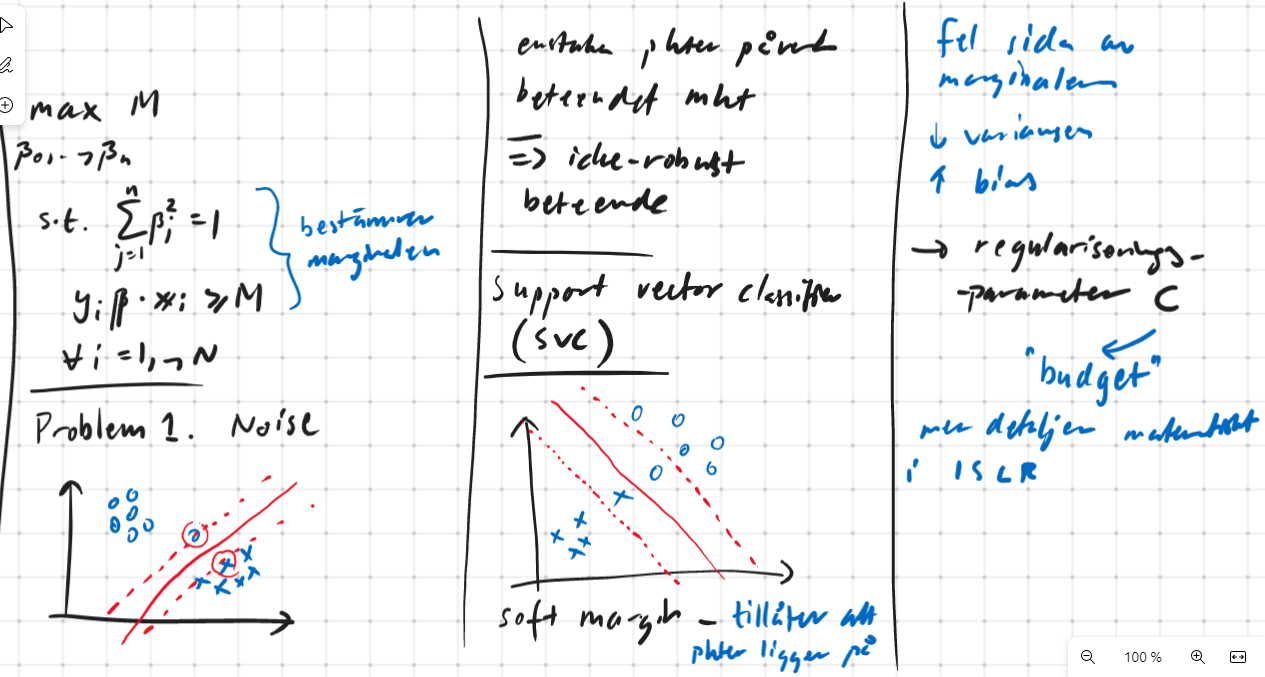 max M
β₀,..,βₙ
s.t. ∑ⱼ₌₁ⁿ βⱼ² = 1
yᵢ β · xᵢ ≥ M
∀ i = 1, , N
bestämmer
marginalen
Problem 1. Noise
enstaka pkter påverk
beteendet mkt
=> icke-robust
beteende
Support vector classifier
(SVC)
soft margin – tillåter att
pkter ligger på
fel sida av
marginalen
↓ variansen
↑ bias
→ regulariserings-
-parameter C
"budget"
mer detaljer matematiskt
i ISLR
100 %